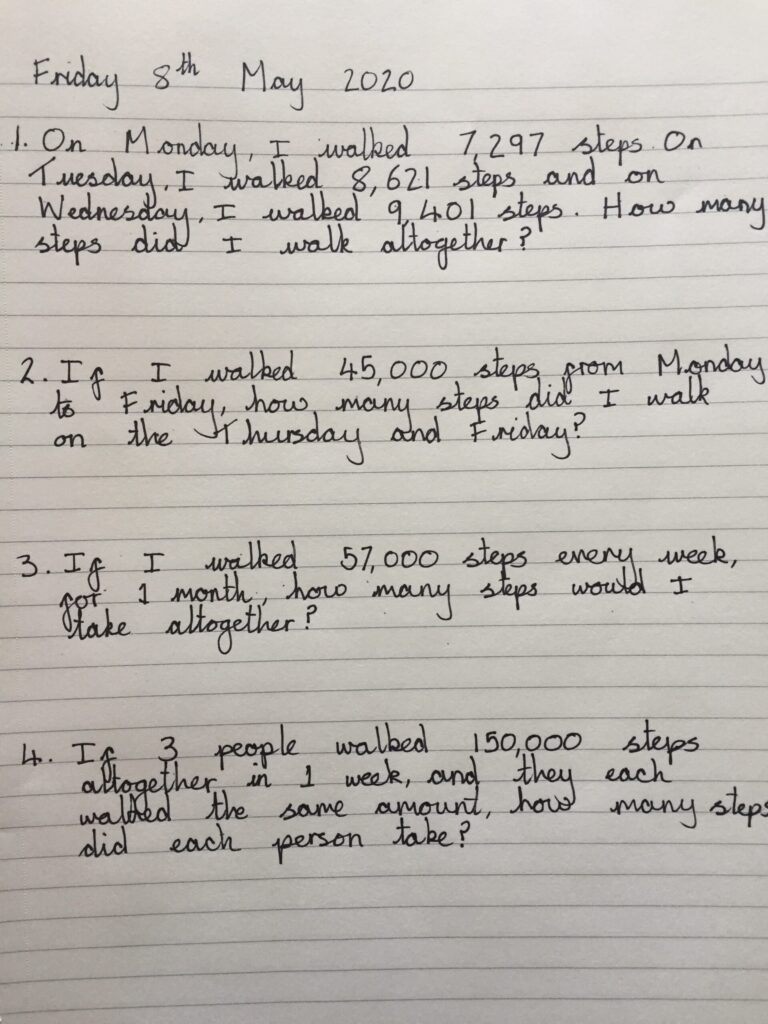 Friday 8th May 2020
1. On Monday, I walked 7,297 steps. On
Tuesday, I walked 8,621 steps and on
Wednesday, I walked 9,401 steps. How many
steps did I walk altogether?
2. If I walked 45,000 steps from Monday
to Friday, how many steps did I walk
on the Thursday and Friday?
3. If I walked 57,000 steps every week,
for 1 month, how many steps would I
take altogether?
4. If 3 people walked 150,000 steps
altogether in 1 week, and they each
walked the same amount, how many steps
did each person take?